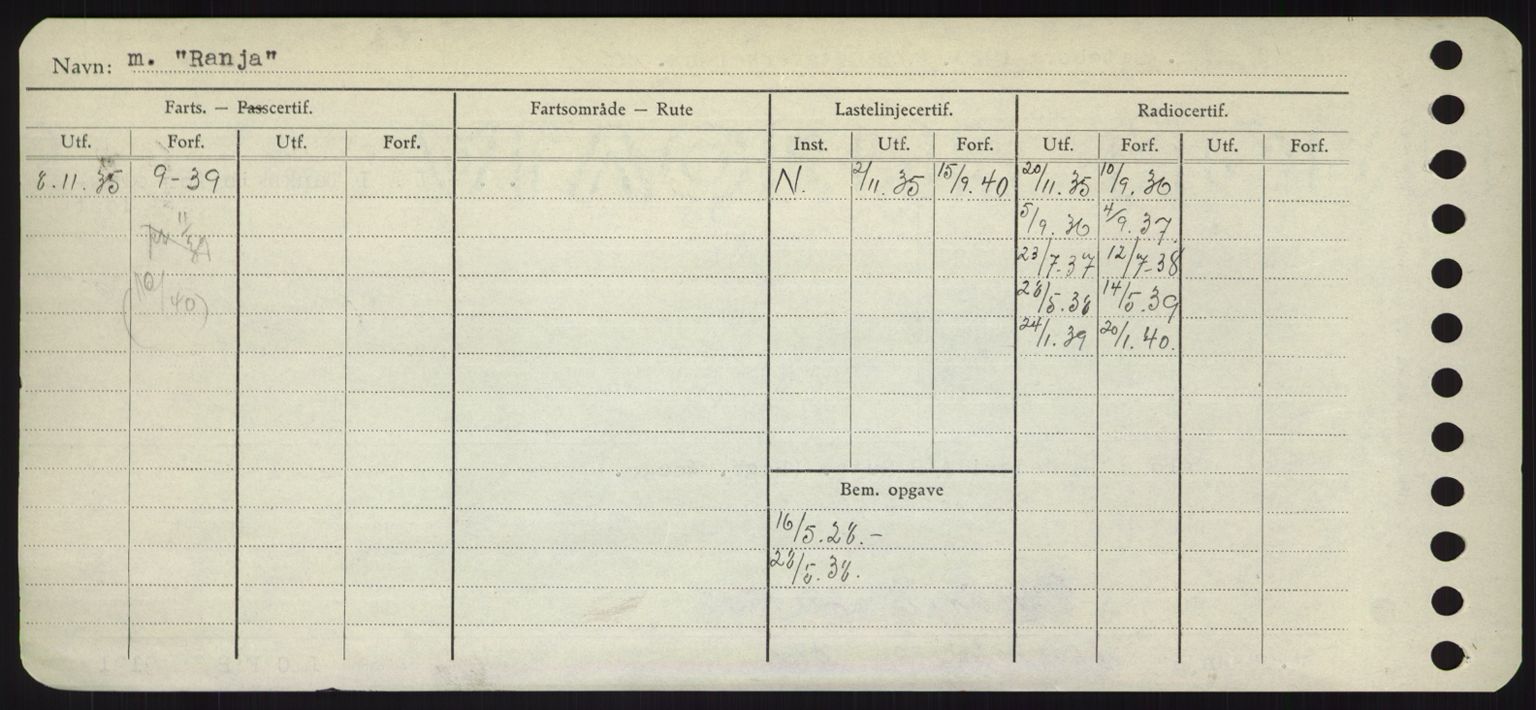 Navn: m. "Ranja"
Farts. — Passcertif. Fartsområde — Rute Lastelinjecertif. Radiocertif.
Utf. Forf. Utf. Forf. Inst. Utf. Forf. Utf. Forf. Utf. Forf.
8.11.35 9-39 N. 2/11.35 15/9.40 20/11.35 10/9.36
5/9.36 4/9.37
11/39
23/7-37 12/7-38
10/40
28/5.38 14/5.39
24/1.39 20/1.40.
Bem. opgave
16/5.28.-
28/5.38.